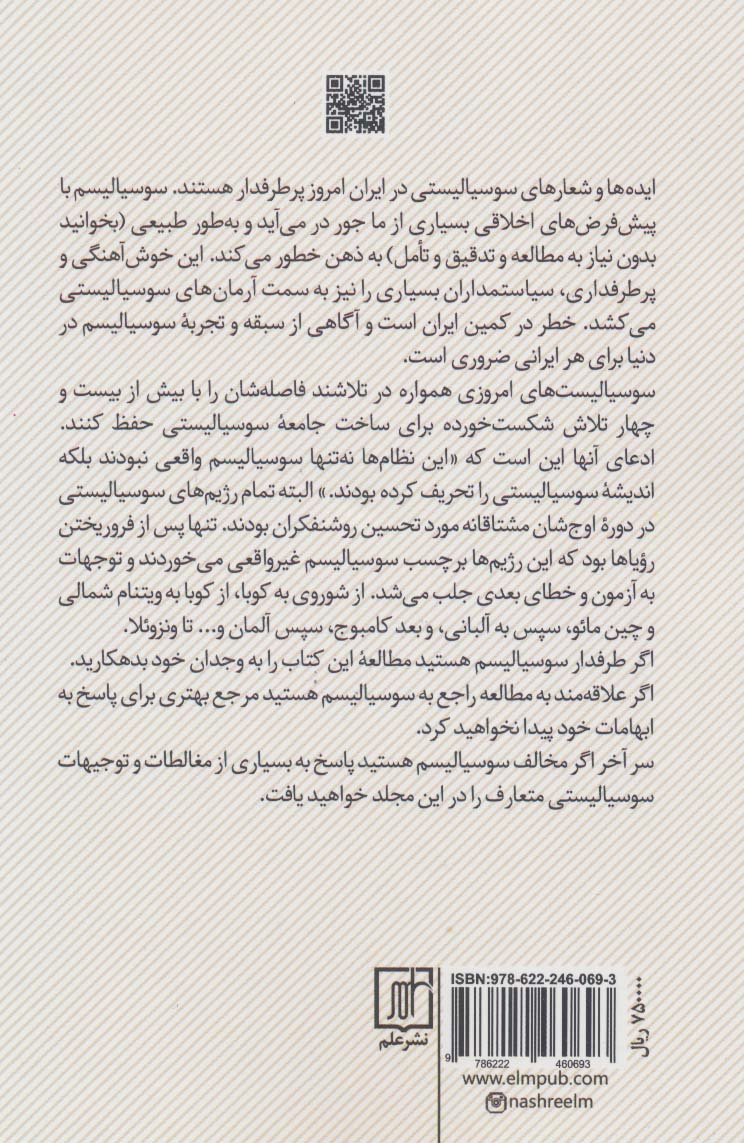 ایده‌ها و شعارهای سوسیالیستی در ایران امروز پرطرفدار هستند. سوسیالیسم با
پیش‌فرض‌های اخلاقی بسیاری از ما جور در می‌آید و به‌طور طبیعی (بخوانید
بدون نیاز به مطالعه و تدقیق و تأمل) به ذهن خطور می‌کند. این خوش‌آهنگی و
پرطرفداری، سیاستمداران بسیاری را نیز به سمت آرمان‌های سوسیالیستی
می‌کشد. خطر در کمین ایران است و آگاهی از سبقه و تجربهٔ سوسیالیسم در
دنیا برای هر ایرانی ضروری است.
سوسیالیست‌های امروزی همواره در تلاشند فاصله‌شان را با بیش از بیست و
چهار تلاش شکست‌خورده برای ساخت جامعهٔ سوسیالیستی حفظ کنند.
ادعای آنها این است که «این نظام‌ها نه‌تنها سوسیالیسم واقعی نبودند بلکه
اندیشهٔ سوسیالیستی را تحریف کرده بودند.» البته تمام رژیم‌های سوسیالیستی
در دورهٔ اوج‌شان مشتاقانه مورد تحسین روشنفکران بودند. تنها پس از فروریختن
رؤیاها بود که این رژیم‌ها برچسب سوسیالیسم غیرواقعی می‌خوردند و توجهات
به آزمون و خطای بعدی جلب می‌شد. از شوروی به کوبا، از کوبا به ویتنام شمالی
و چین مائو، سپس به آلبانی، و بعد کامبوج، سپس آلمان و... تا ونزوئلا.
اگر طرفدار سوسیالیسم هستید مطالعهٔ این کتاب را به وجدان خود بدهکارید.
اگر علاقه‌مند به مطالعه راجع به سوسیالیسم هستید مرجع بهتری برای پاسخ به
ابهامات خود پیدا نخواهید کرد.
سر آخر اگر مخالف سوسیالیسم هستید پاسخ به بسیاری از مغالطات و توجیهات
سوسیالیستی متعارف را در این مجلد خواهید یافت.
نشر علم
ISBN:978-622-246-069-3
9 786222 460693
www.elmpub.com
nashreelm
۷۵۰۰۰۰ ریال